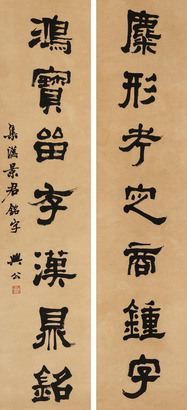 麋形考定商鍾字
鴻寶留存漢鼎銘
集漢景君銘字 興公